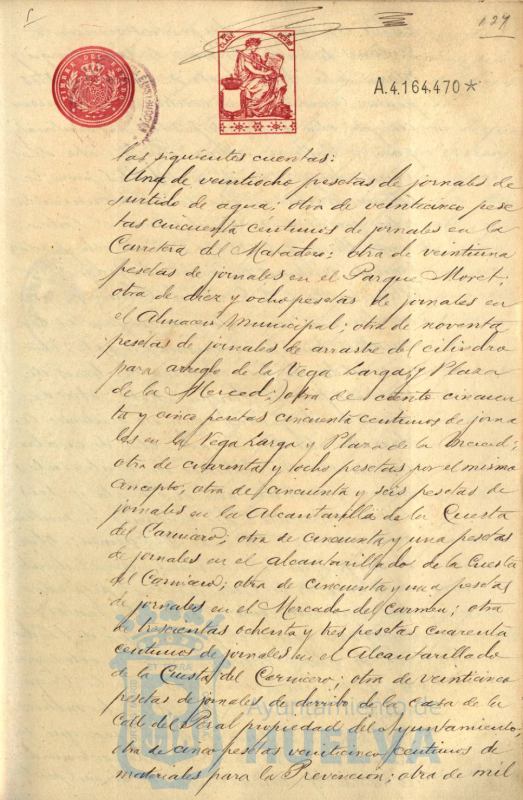 127
CLASE
A.4.164.470*
TIMBRE DEL ESTADO
las siguientes cuentas:
Una de veintiocho pesetas de jornales de
surtido de agua; otra de veinticinco pese
tas cincuenta centimos de jornales en la
Carretera del Matadero; otra de veintiuna
pesetas de jornales en el Parque Moret;
otra de diez y ocho pesetas de jornales en
el Almacen Municipal; otra de noventa
pesetas de jornales de arrastre del cilindro
para arreglo de la Vega Larga y Plaza
de la Merced; otra de ciento cincuen
ta y cinco pesetas cincuenta centimos de jorna
les en la Vega Larga y Plaza de la Merced;
otra de cuarenta y ocho pesetas por el mismo
concepto; otra de cincuenta y seis pesetas de
jornales en la Alcantarilla de la Cuesta
del Carnicero; otra de cincuenta y una pesetas
de jornales en el alcantarillado de la Cuesta
del Carnicero; otra de cincuenta y una pesetas
de jornales en el Mercado del Carmen; otra
de trescientas ochenta y tres pesetas cuarenta
centimos de jornales en el Alcantarillado
de la Cuesta del Carnicero; otra de veinticinco
pesetas de jornales de derribo de la casa de la
Calle del Peral propiedad del Ayuntamiento;
otra de cinco pesetas veinticinco centimos de
materiales para la Prevencion; otra de mil
Ayuntamiento de
HUELVA